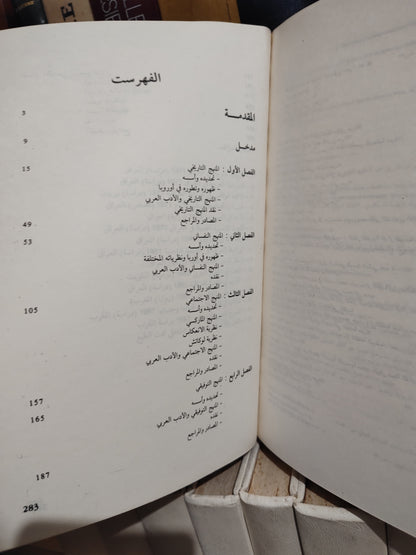 الفهرست
المقدمة 3
مدخل 9
الفصل الأول : المنهج التاريخي 15
- تحديده وأسسه
- ظهوره وتطوره في أوروبا
- المنهج التاريخي والأدب العربي
- نقد المنهج التاريخي
- المصادر والمراجع 49
الفصل الثاني : المنهج النفساني 53
- تحديده وأسسه
- ظهوره في أوربا ونظرياته المختلفة
- المنهج النفساني والأدب العربي
- نقده
- المصادر والمراجع
الفصل الثالث : المنهج الاجتماعي 105
- تحديده وأسسه
- المنهج الماركسي
- نظرية الانعكاس
- نظرية لوكاتش
- المنهج الاجتماعي والأدب العربي
- نقده
- المصادر والمراجع
الفصل الرابع : المنهج التوفيقي 157
- تحديده وأسسه
- المنهج التوفيقي والأدب العربي 165
- نقده
- المصادر والمراجع
187
283